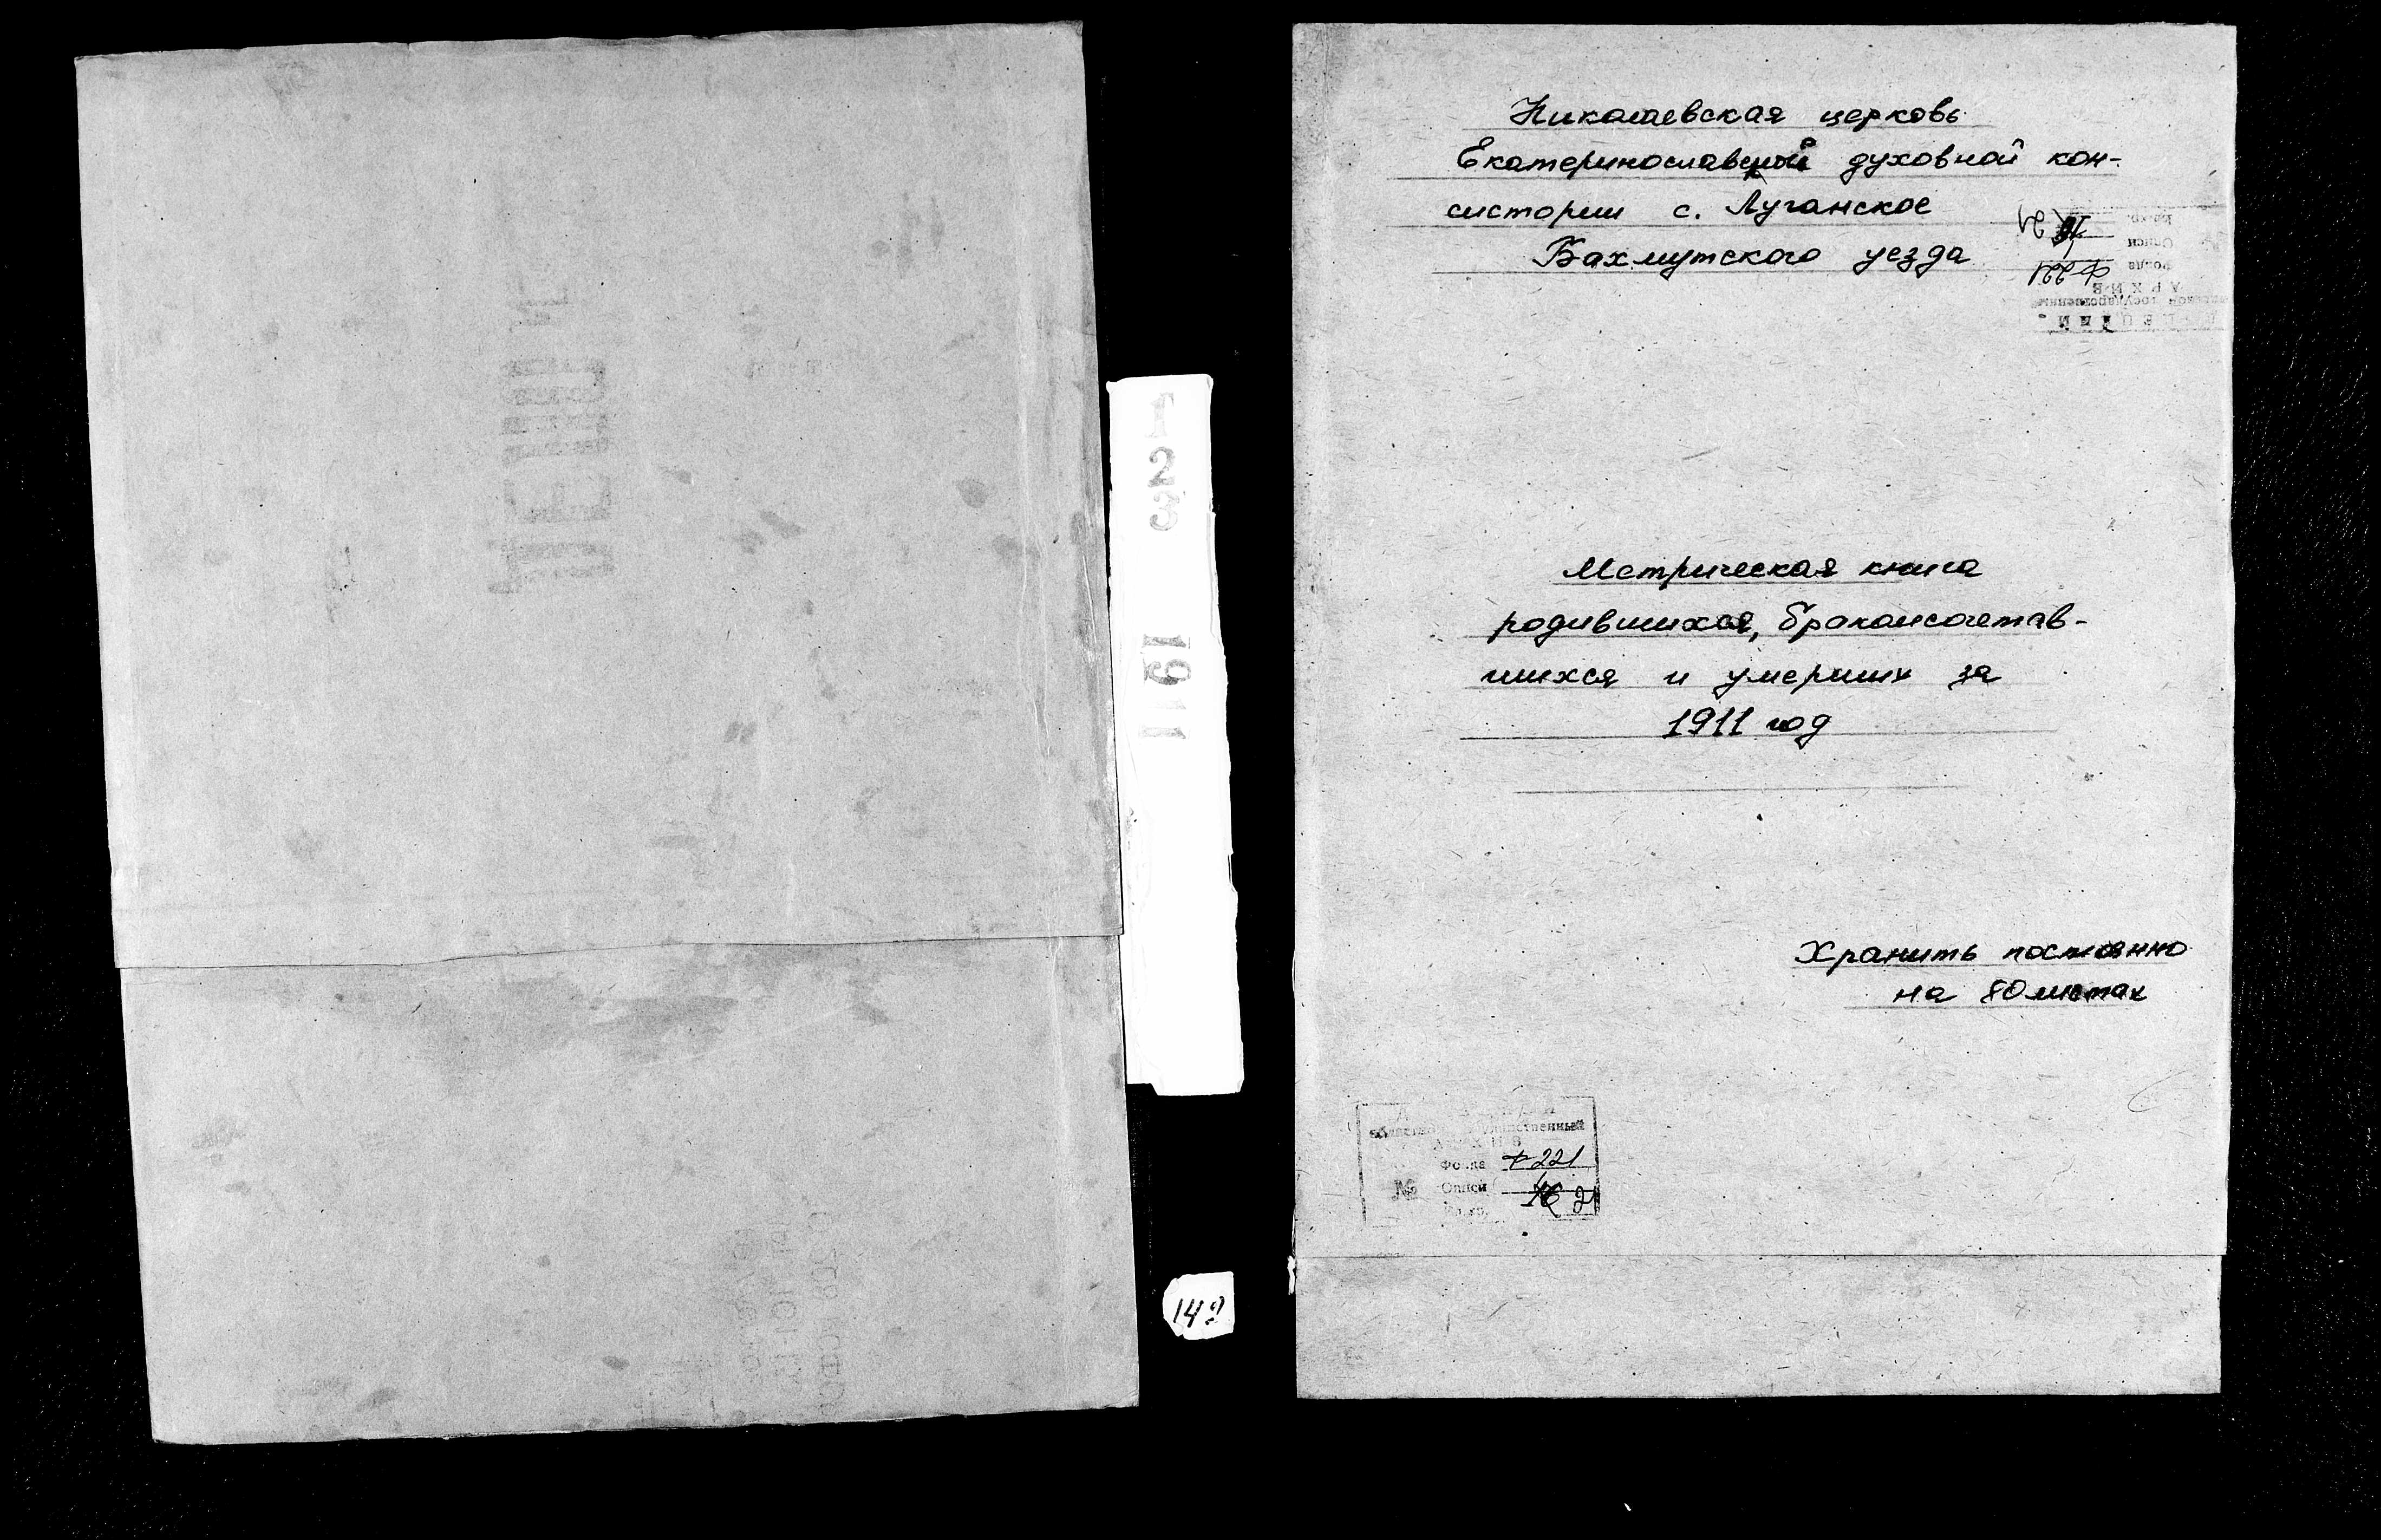 Николаевская церковь
Екатеринославской духовной кон-
систории с. Луганское
Бахмутского уезда
Метрическая книга
родившихся, бракосочетав-
шихся и умерших за
1911 год
Хранить постоянно
на 80 листах
Фонда Ф 221
№ Описи 1
21
1
2
3
1911